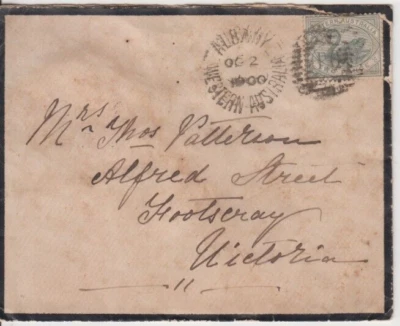 ALBANY
OC 2
1900
WESTERN AUSTRALIA
Mrs Thos Patterson
Alfred Street
Footscray
Victoria